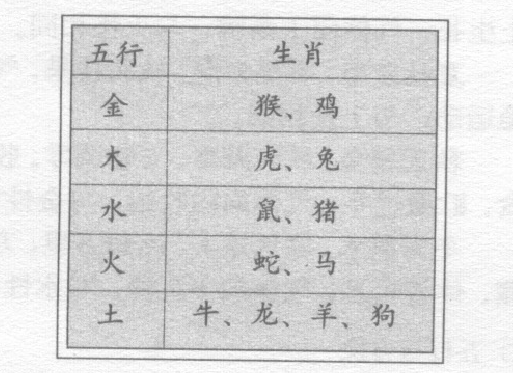 五行 生肖
金 猴、鸡
木 虎、兔
水 鼠、猪
火 蛇、马
土 牛、龙、羊、狗